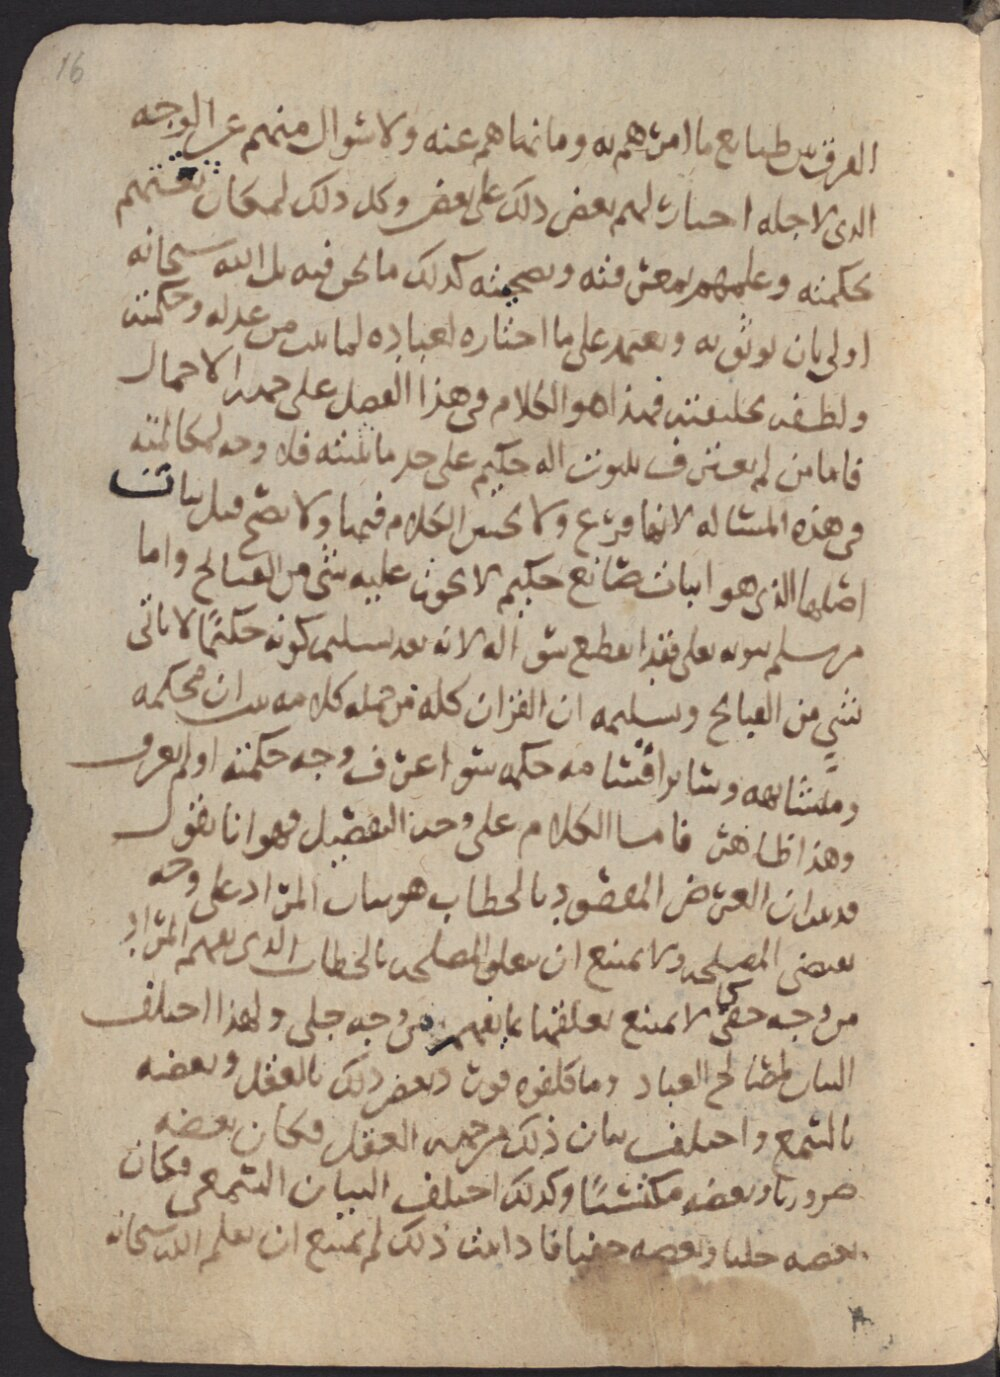 16
الفرق بين طبايع ما امرهم به وما نهاهم عنه ولا سوال منهم عن الوجه
الذي لاجله اختار لهم بعض ذلك على بعض وكل ذلك لمكان ثقتهم
بحكمته وعلمهم بمعرفته ونصيحته كذلك ما نحن فيه بل الله سبحانه
اولى بان يوثق به ويعتمد على ما اختاره لعباده لما ثبت من عدله وحكمته
ولطفه بخليقته فهذا هو الكلام في هذا الفصل على جهة الاجمال
فاما من لم يعترف بثبوت اله حكيم على حد ما نثبته فلا وجه لمكالمته
في هذه المساله لانها فرع ولا يحسن الكلام فيها ولا يصح قبل بيان
اصلها الذي هو اثبات صانع حكيم لا يجوز عليه شي من القبائح واما
من سلم ثبوته تعلى فقد انقطع سواله لانه بعد تسليم كونه حكيما لا ياتي
بشي من القبايح وتسليمه ان القران كله من جمله كلامه يثبت ان محكمه
ومتشابهه وساير اقسامه حكمه سوا عرف وجه حكمته او لم يعرف
وهذا ظاهر فاما الكلام على وجه التفصيل فهو انا نقول
قد ثبت ان الغرض المقصود بالخطاب هو بيان المراد على وجه
يقتضي المصلحه ولا يمتنع ان تعلق المصلحه بالخطاب الذي يفهم المراد
من وجه خفي كما لا يمتنع تعلقها بما يفهم من وجه جلي ولهذا اختلف
البيان لمصالح العباد وما كلفوه فورد بعض ذلك بالعقل وبعضه
بالسمع واختلف بيان ذلك من جهه العقل فكان بعضه
ضروريا وبعضه مكتسبا وكذلك اختلف البيان السمعي فكان
بعضه جليا وبعضه خفيا فاذا ثبت ذلك لم يمتنع ان يعلم الله سبحانه